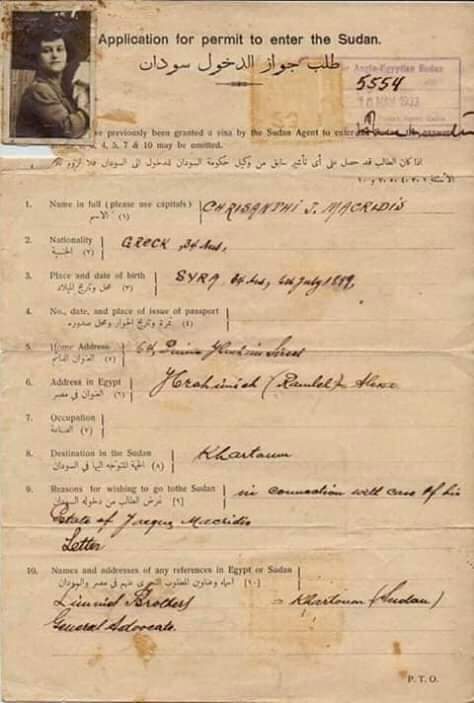 Application for permit to enter the Sudan.
طلب جواز الدخول سودان
Anglo-Egyptian Sudan
5554
have previously been granted a visa by the Sudan Agent to enter
4, 5, 7 & 10 may be omitted.
اذا كان الطالب قد حصل على أى تأشير سابق من وكيل حكومة السودان للدخول الى السودان فلا لزوم
1. Name in full (please use capitals) CHRISANTHI J. MACRIDIS
(١) الاسم
2. Nationality GREEK
(٢) الجنسية
3. Place and date of birth SYRA July
(٣) محل وتاريخ الميلاد
4. No., date, and place of issue of passport
(٤) نمرة وتاريخ الجواز ومحل صدوره
5. Home Address Street
(٥) العنوان الدائم
6. Address in Egypt Ibrahimieh (Ramleh)
(٦) العنوان في مصر
7. Occupation
(٧) الصناعة
8. Destination in the Sudan Khartoum
(٨) الجهة المتوجه اليها في السودان
9. Reasons for wishing to go to the Sudan in connection with case of his
[٩] غرض الطالب من دخوله السودان
Estate of Jacques Macridis
Letter
10. Names and addresses of any references in Egypt or Sudan
[١٠] أسماء وعناوين المطلوب التحرى عنهم في مصر والسودان
Brothers - Khartoum (Sudan)
General Advocate.
P. T. O.